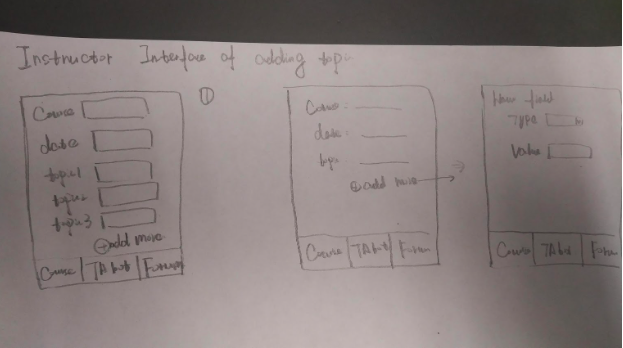 Instructor Interface of adding topic
①
Course
date
topic1
topic2
topic3
⊕add more
Course TAbot Forum
Course:
date:
topic
⊕add more
Course TAbot Forum
New field
TYPE
Value
Course TAbot Forum